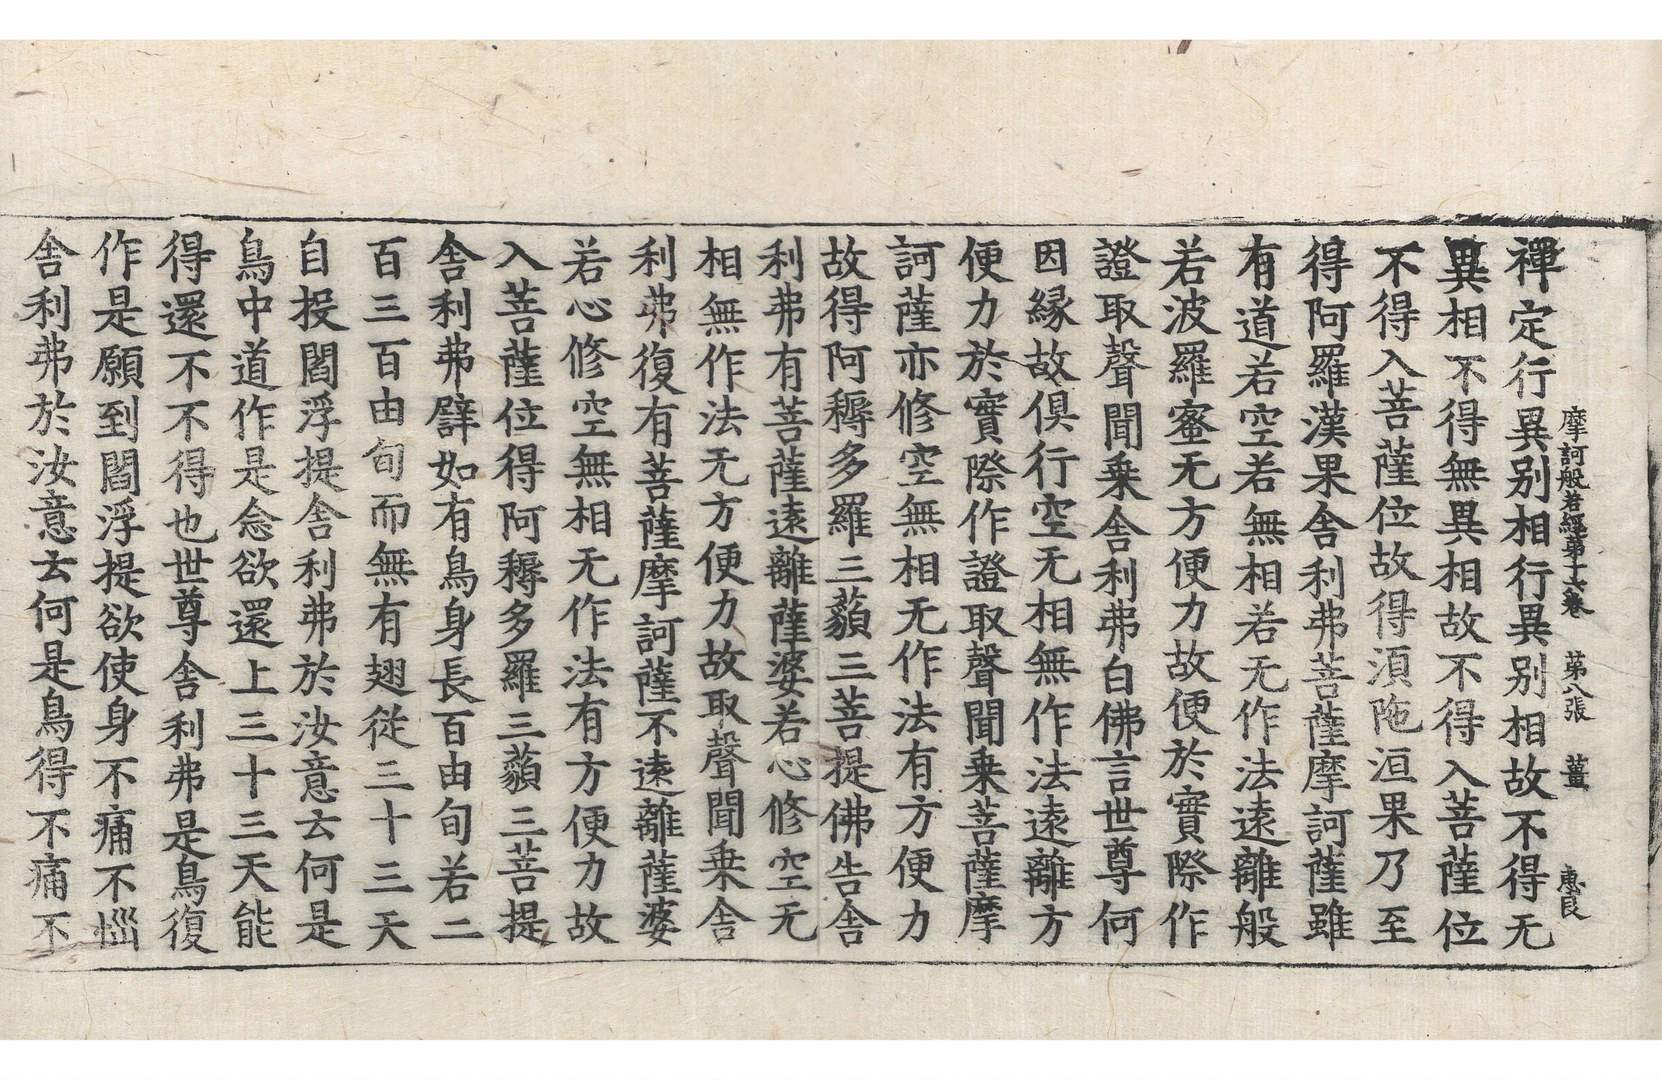 摩訶般若經第十六卷 第八張 薑 惠良
禪定行異別相行異別相故不得无
異相不得無異相故不得入菩薩位
不得入菩薩位故得湏陁洹果乃至
得阿羅漢果舎利弗菩薩摩訶薩雖
有道若空若無相若无作法遠離般
若波羅蜜无方便力故便於實際作
證取聲聞乗舎利弗白佛言世尊何
因縁故俱行空无相無作法遠離方
便力於實際作證取聲聞乗菩薩摩
訶薩亦修空無相无作法有方便力
故得阿耨多羅三藐三菩提佛告舎
利弗有菩薩遠離薩婆若心修空无
相無作法无方便力故取聲聞乗舎
利弗復有菩薩摩訶薩不遠離薩婆
若心修空無相无作法有方便力故
入菩薩位得阿耨多羅三藐三菩提
舎利弗譬如有鳥身長百由旬若二
百三百由旬而無有翅從三十三天
自投閻浮提舎利弗於汝意云何是
鳥中道作是念欲還上三十三天能
得還不不得也世尊舎利弗是鳥復
作是願到閻浮提欲使身不痛不惱
舎利弗於汝意云何是鳥得不痛不